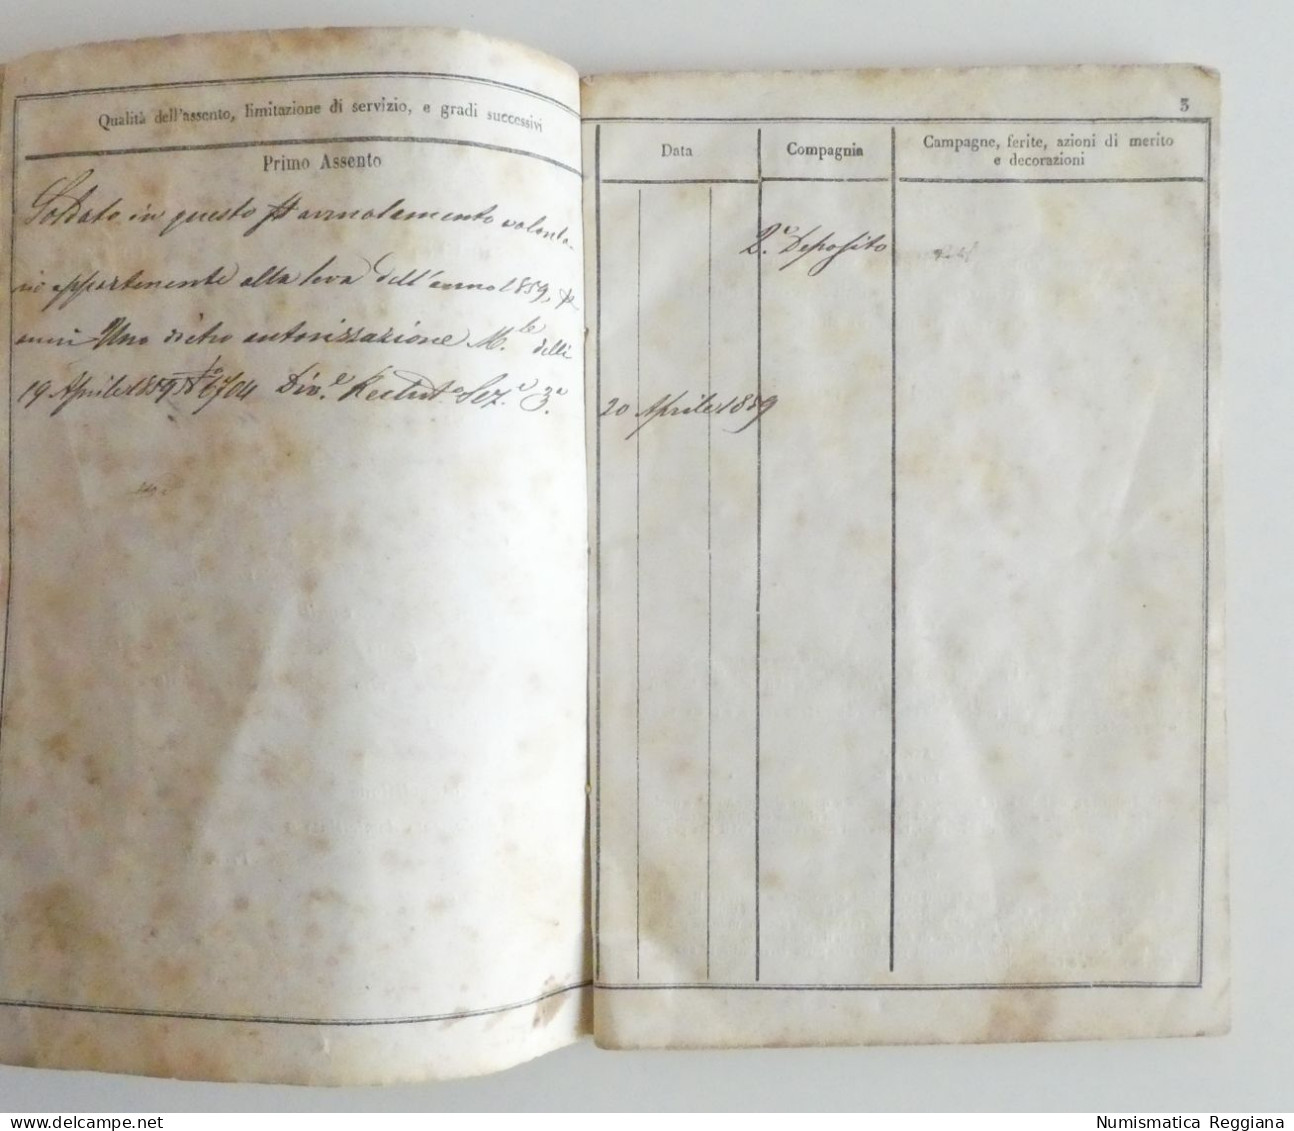 Qualità dell'assento, limitazione di servizio, e gradi successivi
Primo Assento
Soldato in questo arruolamento volonta-
rio appartenente alla leva dell'anno 1859, p
anni Uno dietro autorizzazione M.le delli
19 Aprile 1859 N° 6704 Div.e Reclut.o Sez.e 3.a
5
Data
Compagnia
Campagne, ferite, azioni di merito
e decorazioni
2.° Deposito
20 Aprile 1859
Numismatica Reggiana